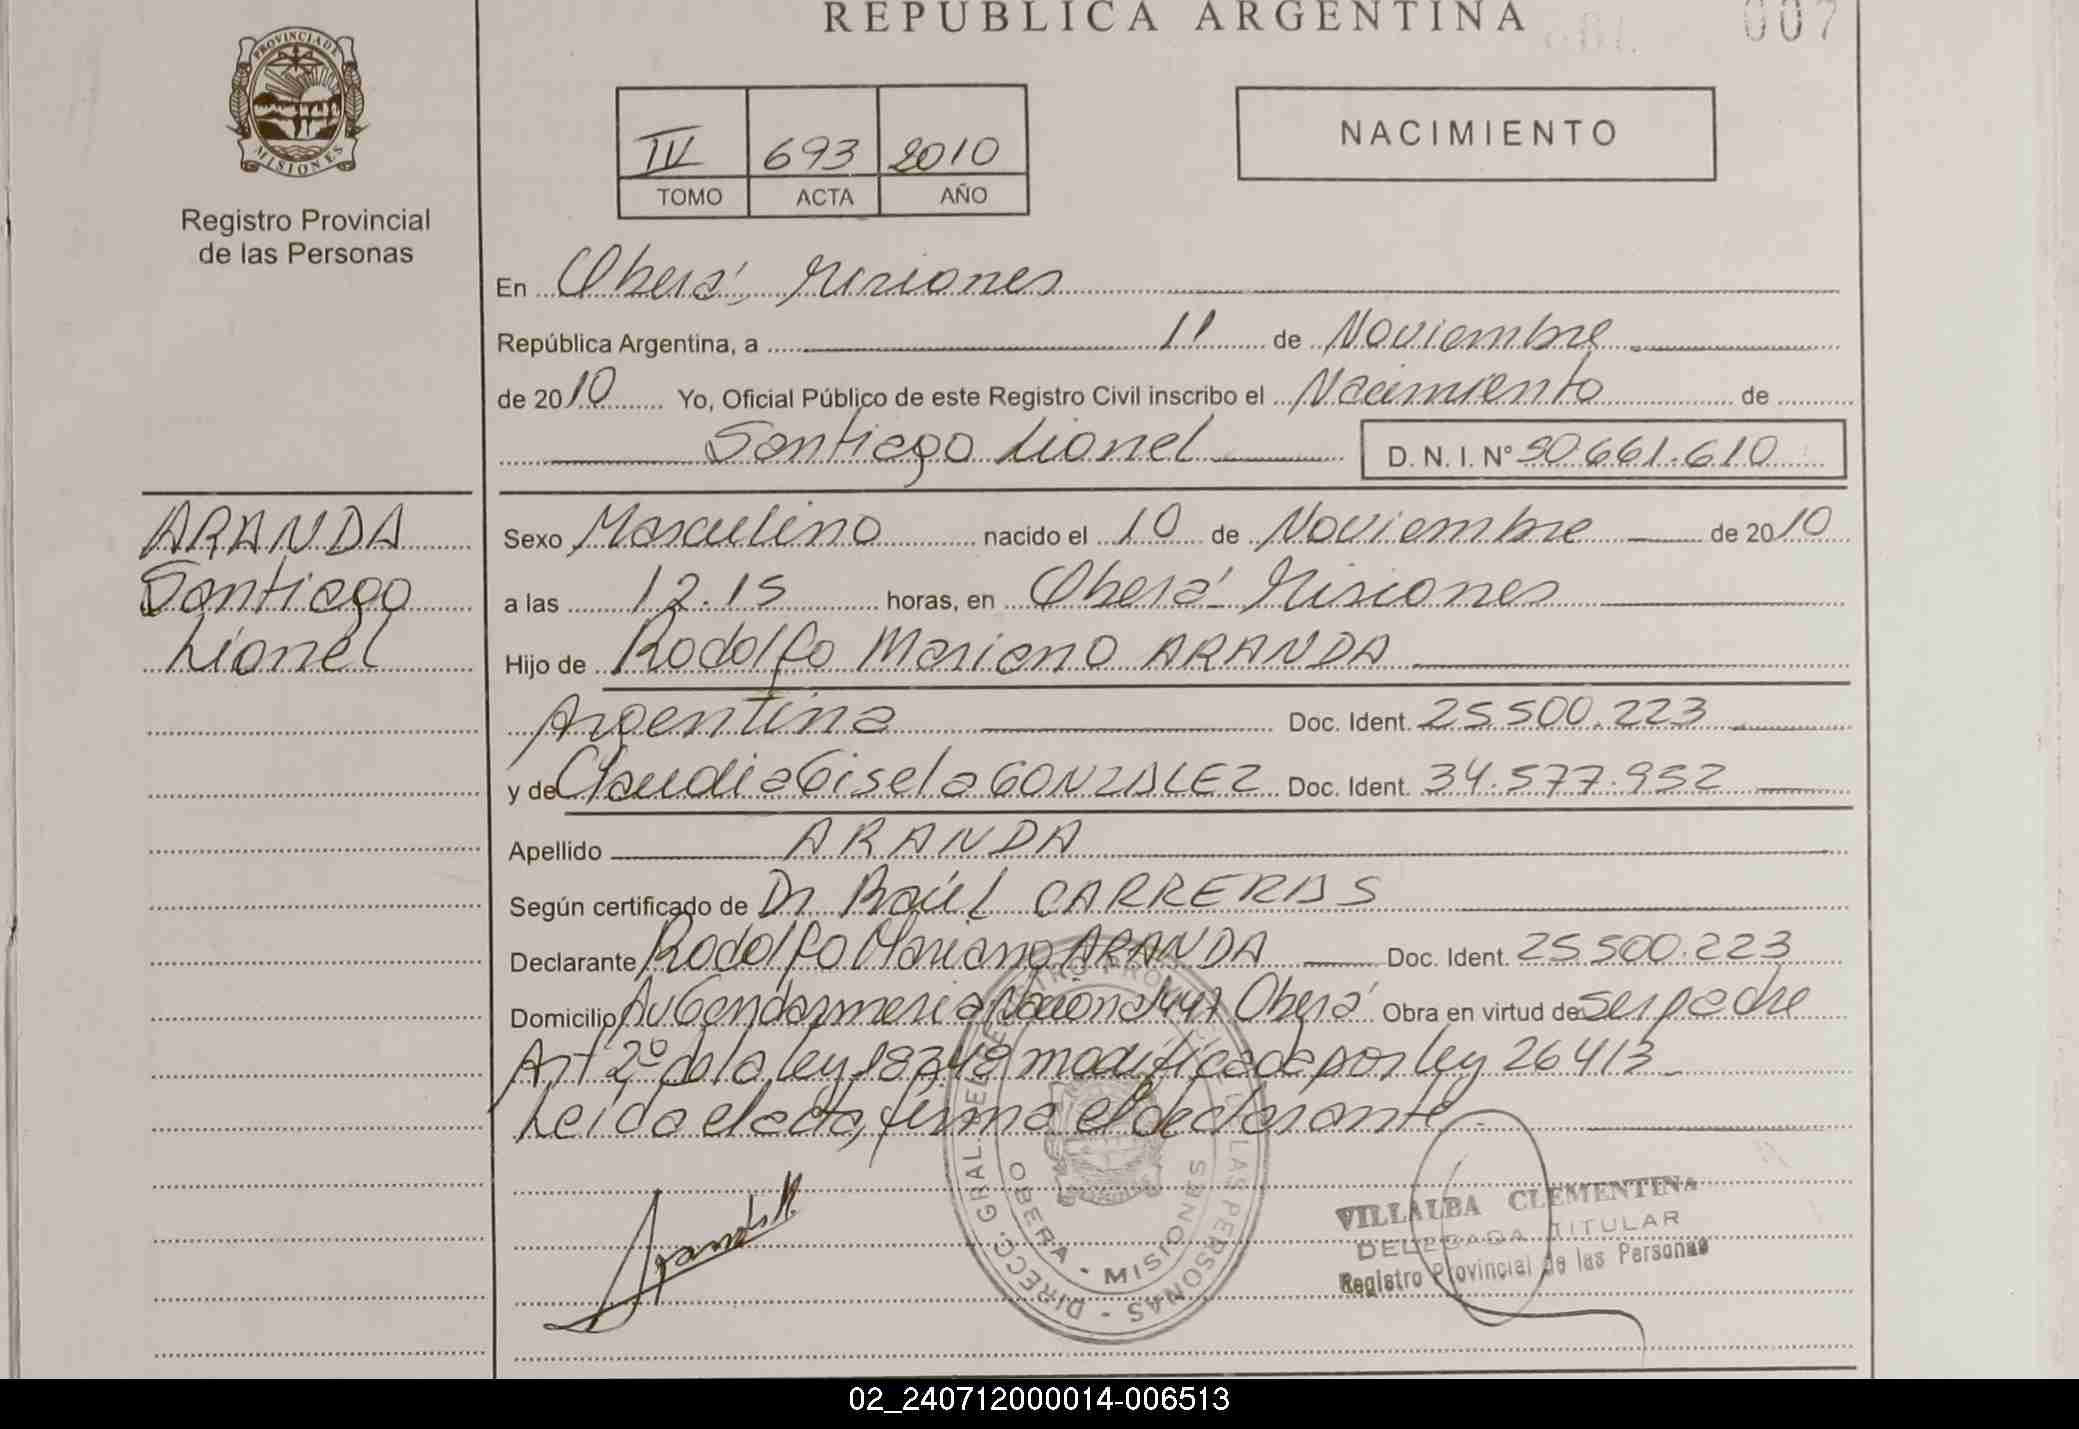 REPUBLICA ARGENTINA
007
PROVINCIA DE MISIONES
Registro Provincial
de las Personas
IV 693 2010
TOMO ACTA AÑO
NACIMIENTO
En Oberá, Misiones
República Argentina, a 11 de Noviembre
de 2010 Yo, Oficial Público de este Registro Civil inscribo el Nacimiento de
Santiago Lionel D. N. I. N° 50661.610
ARANDA
Santiago
Lionel
Sexo Masculino nacido el 10 de Noviembre de 2010
a las 12.15 horas, en Oberá Misiones
Hijo de Rodolfo Mariano ARANDA
Argentina Doc. Ident. 25.500.223
y de Claudia Gisela GONZALEZ Doc. Ident. 34.577.952
Apellido ARANDA
Según certificado de Dr Raúl CARRERAS
Declarante Rodolfo Mariano ARANDA Doc. Ident. 25.500.223
Domicilio Av Gendarmeria Nacional 447 Oberá Obra en virtud de ser padre
Art 2° de la ley 18248 modificada por ley 26413
Leída el acta, firma el declarante
Aranda M.
DIRECC. GRAL. DEL REGISTRO PROVINCIAL DE LAS PERSONAS
OBERA - MISIONES
VILLALBA CLEMENTINA
DELEGADA TITULAR
Registro Provincial de las Personas
02_240712000014-006513